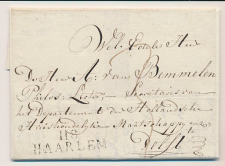 Wel Edele Heer
De Heer A. van Bemmelen
Philos. Secretaris van
het Departement der Hollandsche
Maatschappij
Delft
HAARLEM